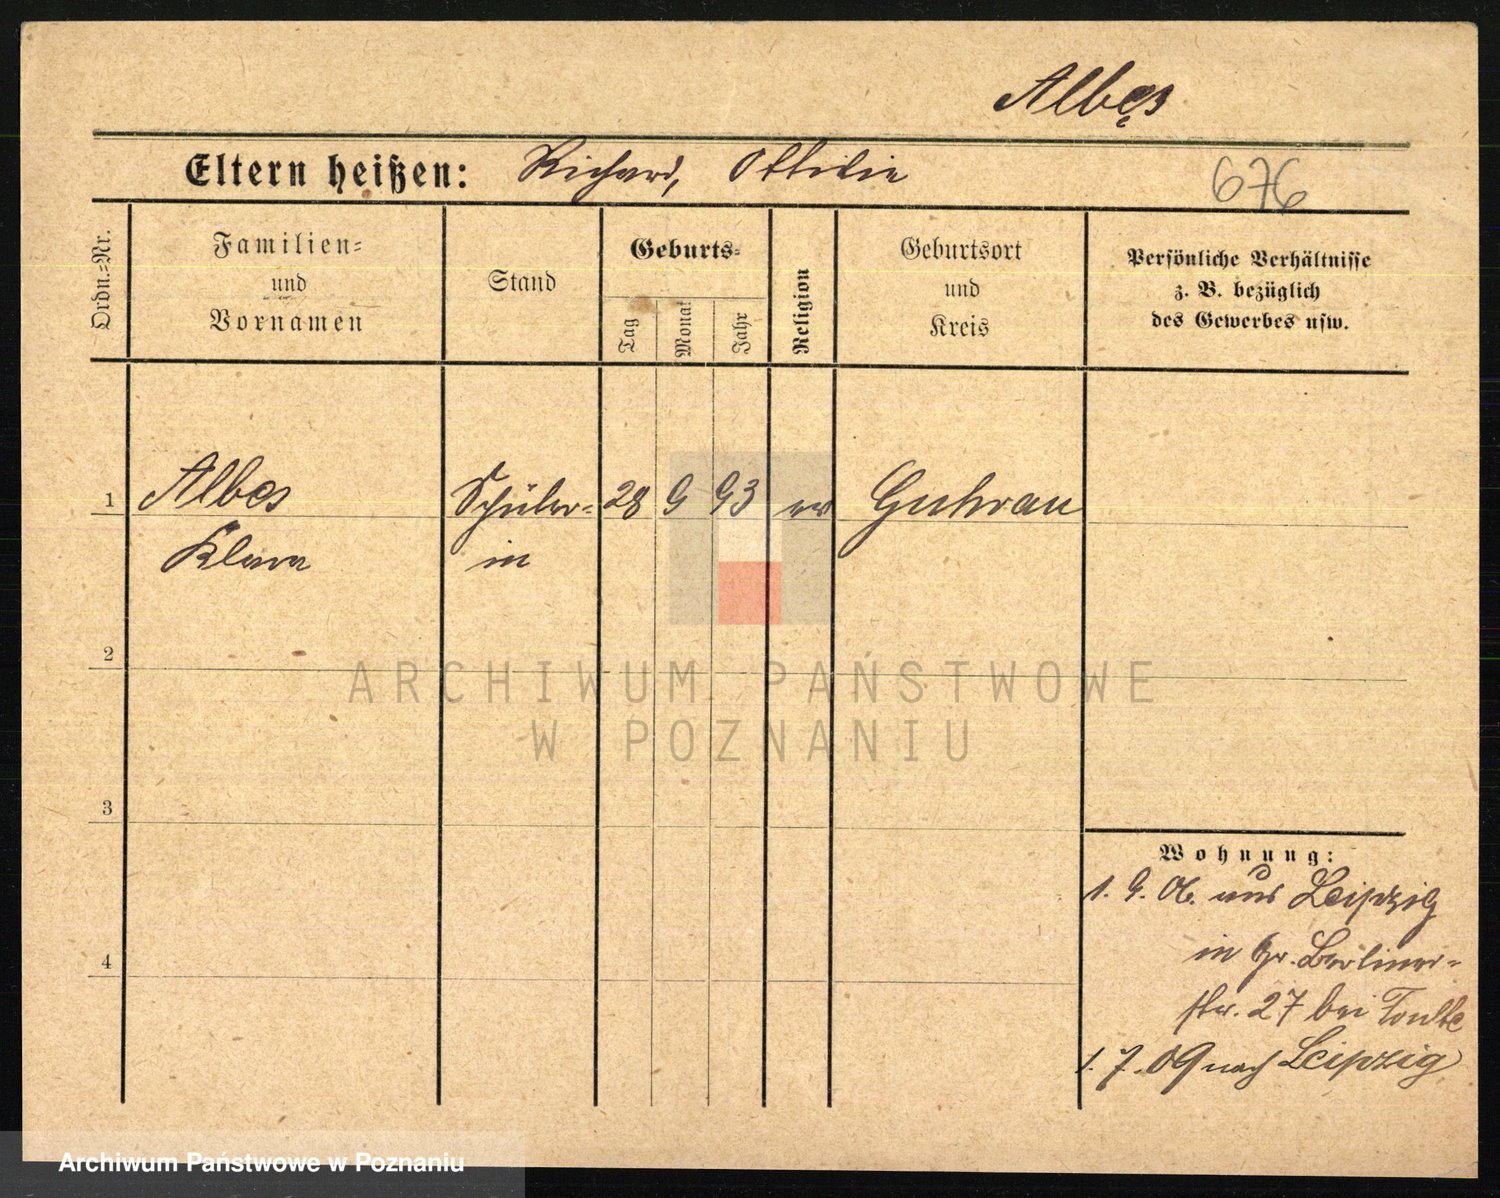 Albes
Eltern heißen: Richard, Ottilie
676
Ordn.=Nr.
Familien=
und
Vornamen
Stand
Geburts=
Tag
Monat
Jahr
Religion
Geburtsort
und
Kreis
Persönliche Verhältnisse
z. B. bezüglich
des Gewerbes usw.
1 Albes Schüler= 28 9 93 ev Guhrau
Klara in
2
3
4
Wohnung:
1. 9. 06. aus Leipzig
in Gr. Berliner=
str. 27 bei
1. 7. 09 nach Leipzig
ARCHIWUM PAŃSTWOWE
W POZNANIU
Archiwum Państwowe w Poznaniu